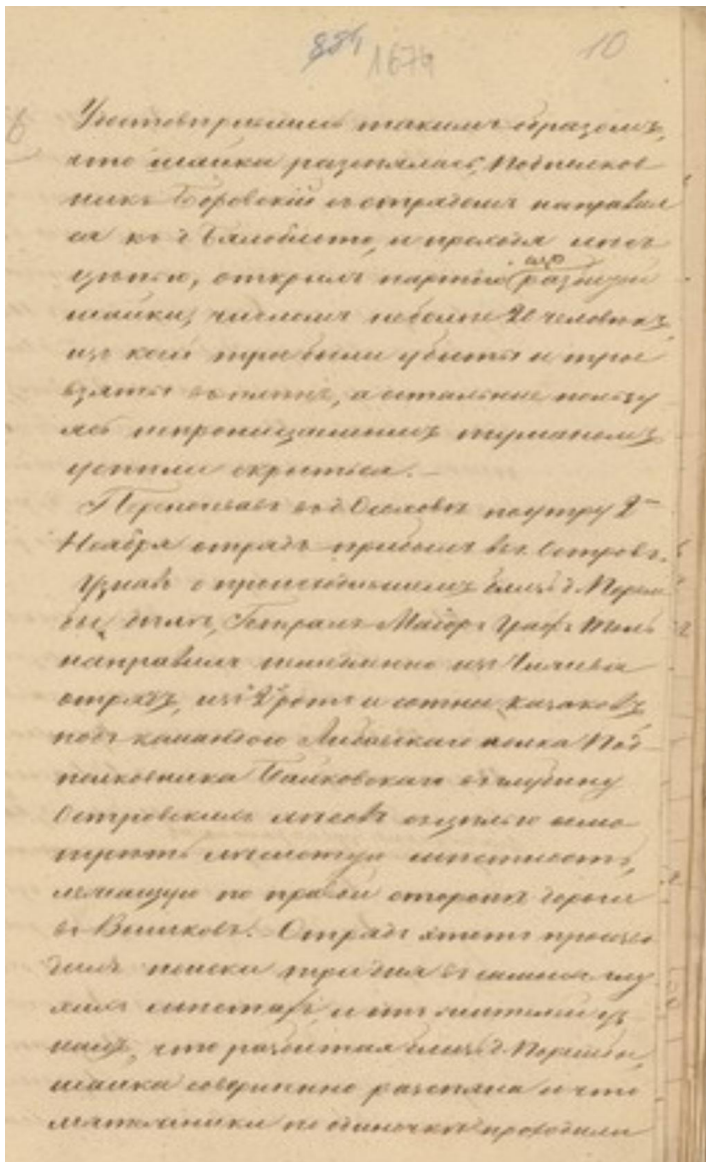 884 1674 10
Удостоверившись такимъ образомъ,
что шайка разсѣялась, Подполков
никъ Боровскій съ отрядомъ направил
ся къ д. Бялоблото, и проходя лѣсъ
цѣпью, открылъ партію разбитой
шайки, числомъ неболѣе 20 человѣкъ,
изъ коей трое были убиты и трое
взяты въ плѣнъ, а остальные пользу
ясь непроницаемымъ туманомъ,
успѣли скрыться.
Переночевавъ въ д. поутру 2
Ноября отрядъ прибылъ въ г. Островъ.
Узнавъ о происходившемъ близъ д. Порем
бы дѣлѣ, Генералъ-Маіоръ Графъ Толь
направилъ немедленно изъ
отрядъ, изъ 2 ротъ и сотни казаковъ,
подъ командою полка Под
полковника въ глубину
Островскихъ лѣсовъ съ цѣлью осмо
трѣть лѣсистую мѣстность,
лежащую по правой сторонѣ дороги
въ Вышковъ. Отрядъ этотъ произво
дилъ поиски три дня въ самыхъ глу
хихъ мѣстахъ, и отъ жителей уз
налъ, что разбитая близъ д. Порембы,
шайка совершенно разсѣяна и что
мятежники по одиночкѣ проходили